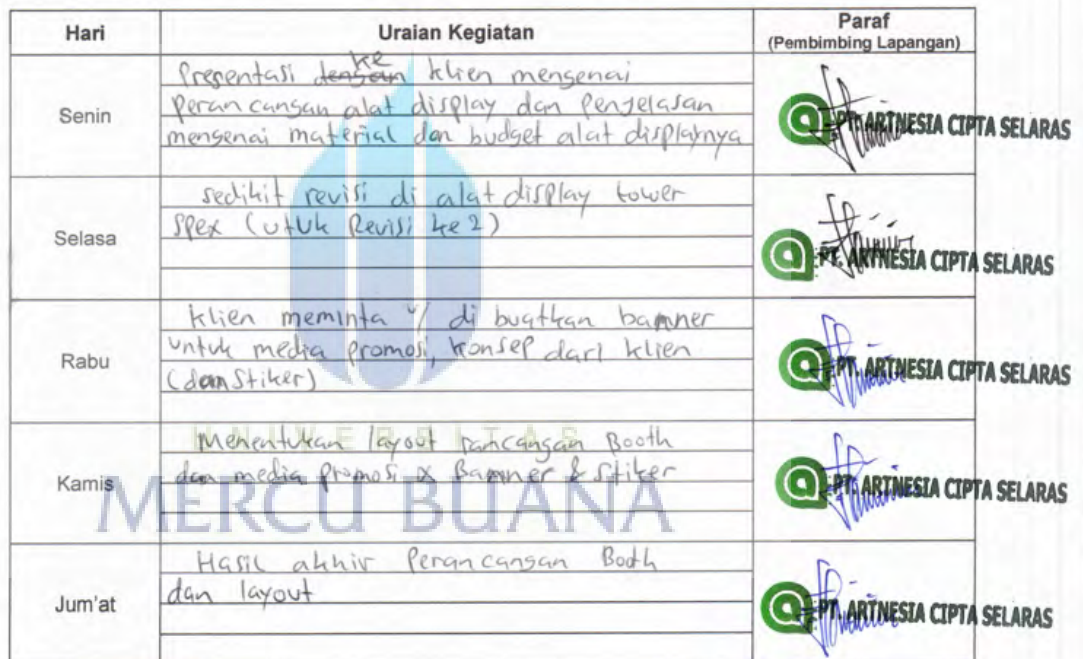 Hari Uraian Kegiatan Paraf
(Pembimbing Lapangan)
Senin
Presentasi dengan ke klien mengenai
Perancangan alat display dan Penjelasan
mengenai material dan budget alat displaynya
PT. ARTNESIA CIPTA SELARAS
Selasa
sedikit revisi di alat display tower
SPex (utuk Revisi ke 2)
PT. ARTNESIA CIPTA SELARAS
Rabu
klien meminta u/ di buatkan banner
untuk media promosi, konsep dari klien
(dan Stiker)
PT. ARTNESIA CIPTA SELARAS
UNIVERSITAS
Kamis
Menentukan layout rancangan Booth
dan media promosi X Banner & Stiker
MERCU BUANA
PT. ARTNESIA CIPTA SELARAS
Jum'at
Hasil akhir Perancangan Booth
dan layout
PT. ARTNESIA CIPTA SELARAS